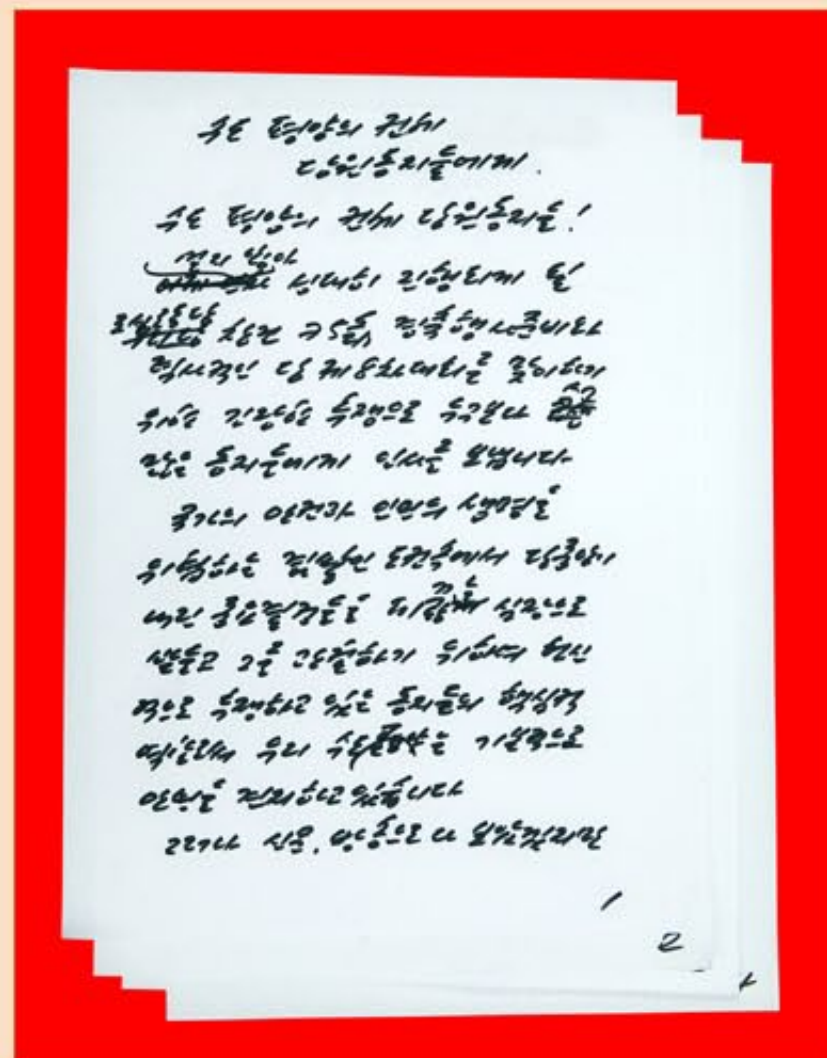 수도 평양의 전체
당원동지들에게.
수도 평양의 전체 당원동지들!
성대히 진행되게 될
조선로동당 창건 75돐 경축행사준비와
력사적인 당 제8차대회를 맞이하기
위한 긴장한 투쟁으로 누구보다 수고
많은 동지들에게 인사를 보냅니다
국가의 안전과 인민의 생명을
위협하는 도전속에서 당중앙이
내린 중요결정들을 피끓는 심장으로
받들고 그를 관철하기 위하여 헌신
적으로 투쟁하고 있는 동지들의 핵심적
우리 수도는 기본적으로
안정을 견지하고있습니다
그러나 신문, 방송으로 다 보았겠지만
1
2